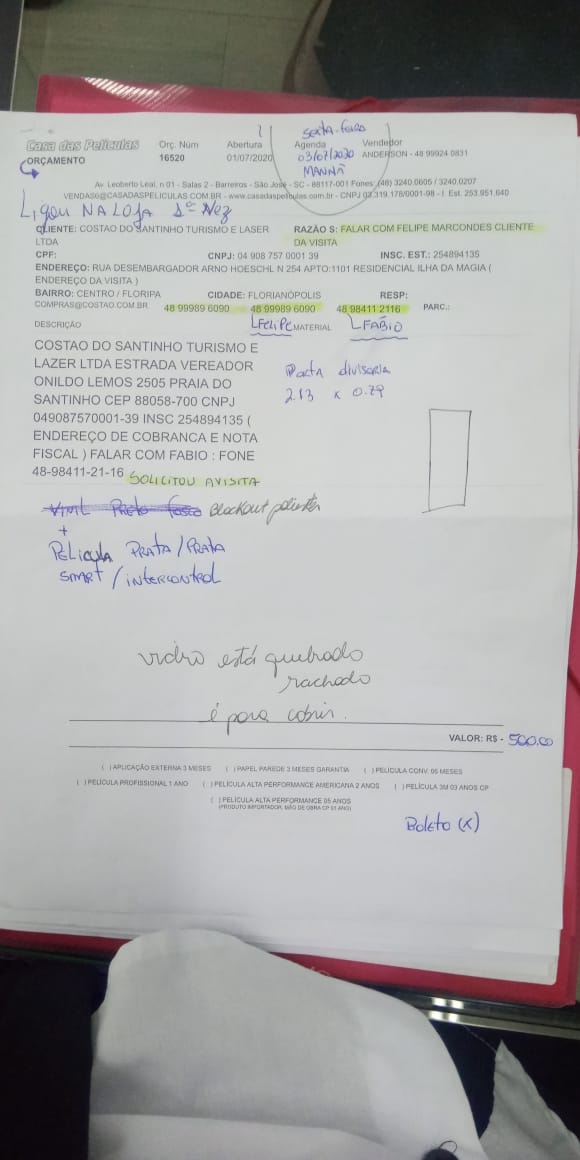 sexta-feira
Casa das Películas Orç. Núm Abertura Agenda Vendedor
ORÇAMENTO 16520 01/07/2020 03/07/2020 ANDERSON - 48 99924 0831
MANHÃ
Av. Leoberto Leal, n 01 - Salas 2 - Barreiros - São José - SC - 88117-001 Fones: (48) 3240.0605 / 3240.0207
VENDAS6@CASADASPELICULAS.COM.BR - www.casadaspeliculas.com.br - CNPJ 03.319.178/0001-98 - I. Est. 253.951.640
Ligou NA LOJA 1ª Vez
CLIENTE: COSTAO DO SANTINHO TURISMO E LASER RAZÃO S: FALAR COM FELIPE MARCONDES CLIENTE
LTDA DA VISITA
CPF: CNPJ: 04 908 757 0001 39 INSC. EST.: 254894135
ENDEREÇO: RUA DESEMBARGADOR ARNO HOESCHL N 254 APTO:1101 RESIDENCIAL ILHA DA MAGIA (
ENDEREÇO DA VISITA )
BAIRRO: CENTRO / FLORIPA CIDADE: FLORIANÓPOLIS RESP:
COMPRAS@COSTAO.COM.BR 48 99989 6090 48 99989 6090 48 98411 2116 PARC.:
DESCRIÇÃO FELIPE MATERIAL FÁBIO
COSTAO DO SANTINHO TURISMO E
LAZER LTDA ESTRADA VEREADOR
ONILDO LEMOS 2505 PRAIA DO
SANTINHO CEP 88058-700 CNPJ
049087570001-39 INSC 254894135 (
ENDERECO DE COBRANCA E NOTA
FISCAL ) FALAR COM FABIO : FONE
48-98411-21-16 SOLICITOU A VISITA
Porta divisoria
2.13 x 0.79
Vinil Preto fosco Blackout poliester
+
PELICULA PRATA/PRATA
SMART / INTERCONTROL
vidro está quebrado
rachado
é para cobrir.
VALOR: R$ - 500.00
( )APLICAÇÃO EXTERNA 3 MESES ( )PAPEL PAREDE 3 MESES GARANTIA ( )PELÍCULA CONV. 06 MESES
( )PELÍCULA PROFISSIONAL 1 ANO ( )PELÍCULA ALTA PERFORMANCE AMERICANA 2 ANOS ( )PELÍCULA 3M 03 ANOS CP
( )PELÍCULA ALTA PERFORMANCE 05 ANOS
(PRODUTO IMPORTADOR, MÃO DE OBRA CP 01 ANO)
Boleto (x)